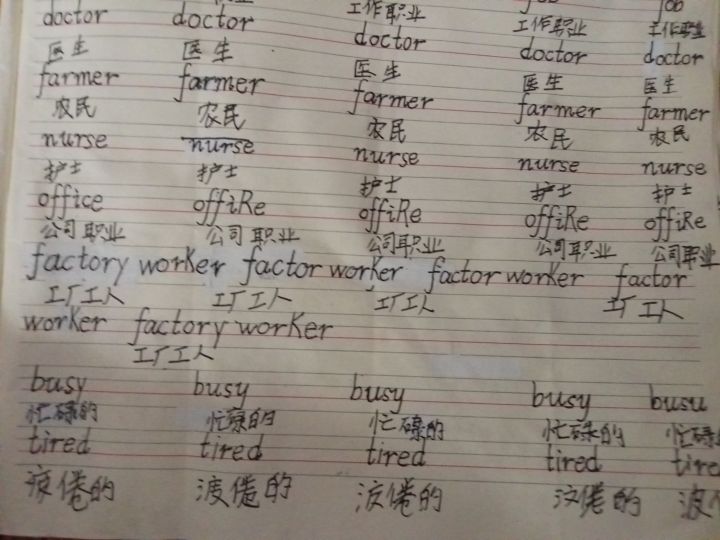 工作职业 工作职业 工作职业
doctor doctor doctor doctor doctor
医生 医生 医生 医生 医生
farmer farmer farmer farmer farmer
农民 农民 农民 农民 农民
nurse nurse nurse nurse nurse
护士 护士 护士 护士 护士
office offiRe offiRe offiRe offiRe
公司职业 公司职业 公司职业 公司职业 公司职业
factory worker factor worker factor worker factor
工厂工人 工厂工人 工厂工人 工厂工人
worker factory worker
工厂工人
busy busy busy busy busu
忙碌的 忙碌的 忙碌的 忙碌的 忙碌
tired tired tired tired tire
疲倦的 渡倦的 倦的 倦的 波